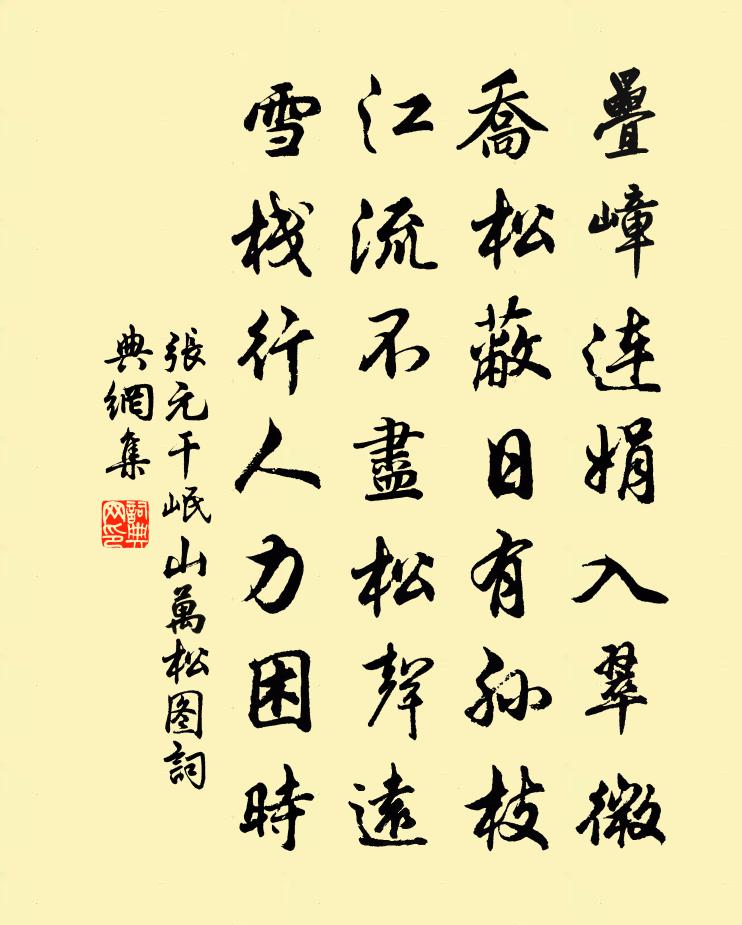 疊嶂連娟入翠微
喬松蔽日有孫枝
江流不盡松聲遠
雪棧行人力困時
張元干岷山萬松图詞
典網集
詞典
网印